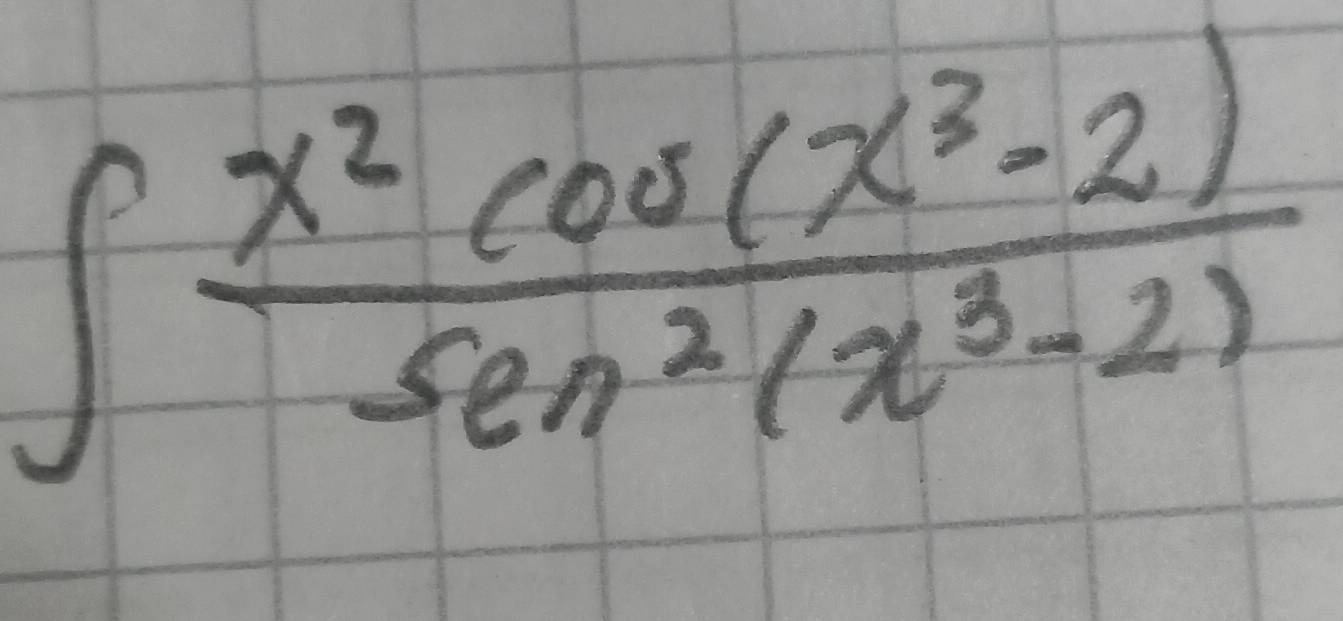 ∫ x² cos(x³-2) / sen²(x³-2)